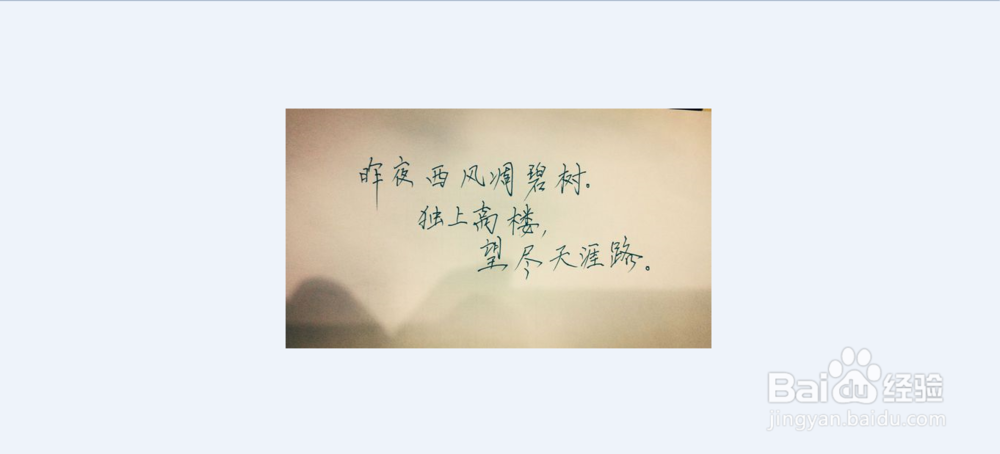 昨夜西风凋碧树。
独上高楼,
望尽天涯路。
Baidu经验
jingyan.baidu.com